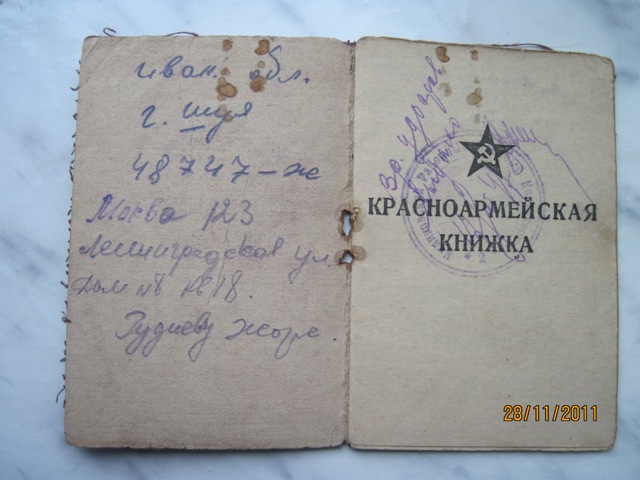 иван. обл.
г. шуя
48747-ж
Москва 123
Ленинградская ул.
Дом №8 кв 18.
Гудиеву Жоре.
КРАСНОАРМЕЙСКАЯ
КНИЖКА
28/11/2011